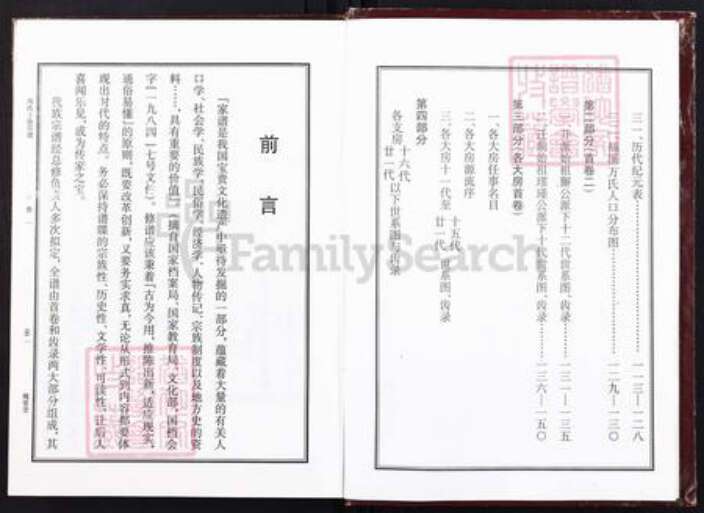 三一、历代纪元表……一一三—一二八
福国万氏人口分布图……一二九—一三〇
第二部分(首卷二)
公派下十二代世系图、齿录……一三一—一三五
公派下十代世系图、齿录……一三六—一五〇
第三部分(各大房首卷)
一、各大房任事名目
二、各大房源流序
三、各大房十一代至十五代、廿一代世系图、齿录
第四部分
各支房十六代、廿一代以下世系图与齿录
前言
「家谱是我国宝贵文化遗产中亟待发掘的一部分，蕴藏着大量的有关人
口学、社会学、民族学、民俗学、经济学、人物传记、宗族制度以及地方史的资
料……，具有重要的价值」(摘自国家档案局、国家教育局、文化部，国档会
字[一九八四]七号文件)。修谱应该秉着「古为今用，推陈出新，适应现实，
通俗易懂」的原则，既要改革创新，又要务实求真，无论从形式到内容都要体
现出时代的特点。务必保持谱牒的宗族性、历史性、文学性、可读性，让后人
喜闻乐见，成为传家之宝。
氏族宗谱经总修负责人多次拟定，全谱由首卷和齿录两大部分组成，其
FamilySearch